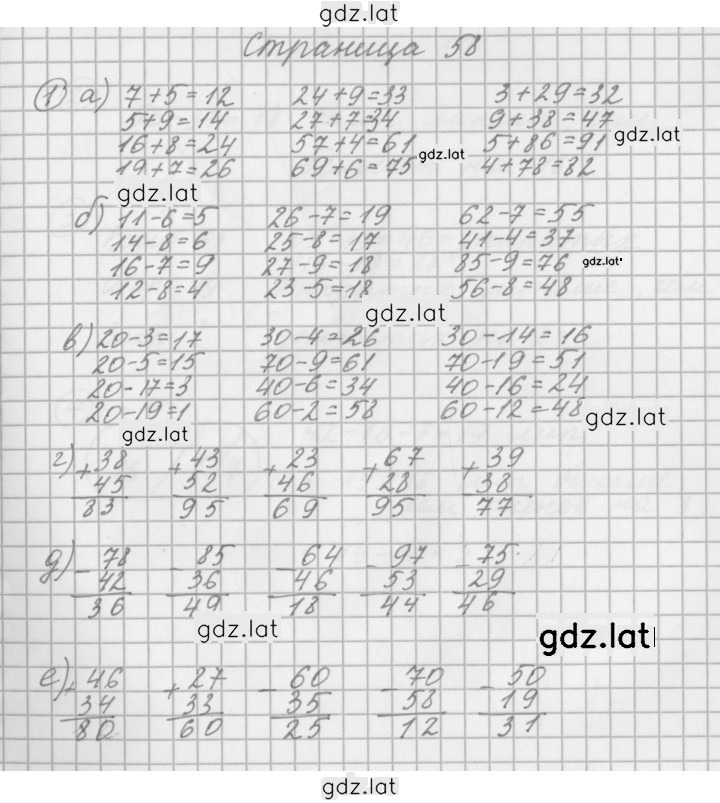 gdz.lat
Страница 58
1 а) 7+5=12 24+9=33 3+29=32
5+9=14 27+7=34 9+38=47 gdz.lat
16+8=24 57+4=61 gdz.lat 5+86=91
19+7=26 69+6=75 4+78=82
gdz.lat
б) 11-6=5 26-7=19 62-7=55
14-8=6 25-8=17 41-4=37
16-7=9 27-9=18 85-9=76 gdz.lat
12-8=4 23-5=18 56-8=48
gdz.lat
в) 20-3=17 30-4=26 30-14=16
20-5=15 70-9=61 70-19=51
20-17=3 40-6=34 40-16=24
20-19=1 60-2=58 60-12=48 gdz.lat
gdz.lat
г) +38 +43 +23 +67 +39
45 52 46 28 38
83 95 69 95 77
д) -78 -85 -64 -97 -75
42 36 46 53 29
36 49 18 44 46
gdz.lat gdz.lat
е) +46 +27 -60 -70 -50
34 33 35 58 19
80 60 25 12 31
gdz.lat